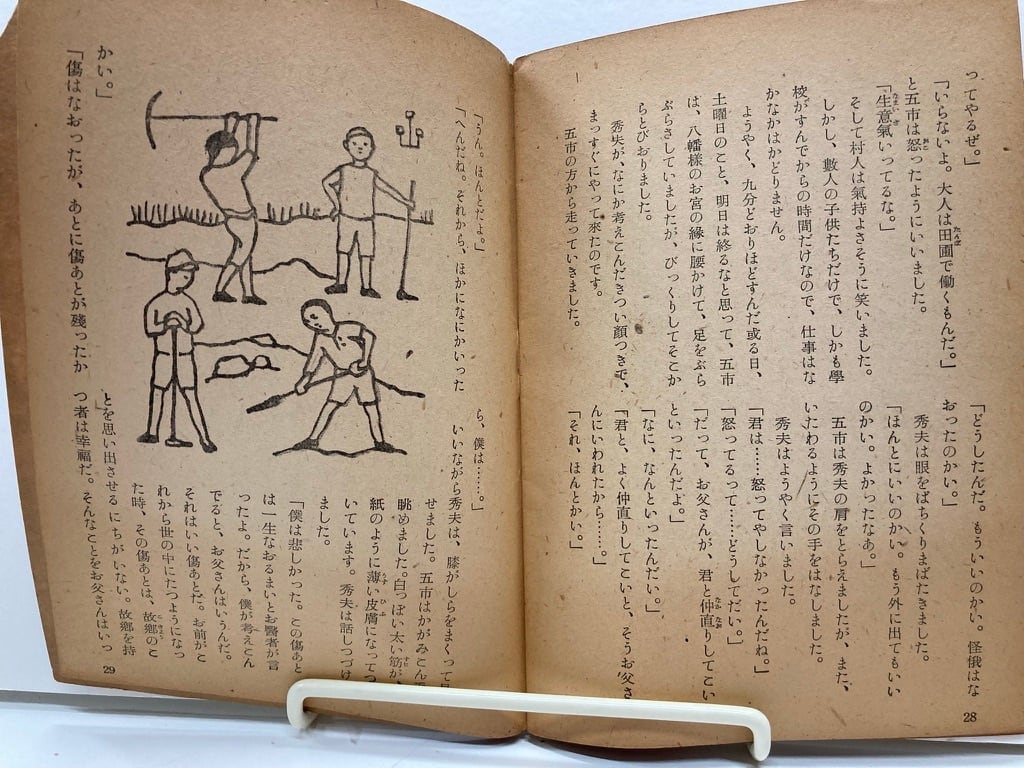 ってやるぜ。」
「いらないよ。大人は田圃で働くもんだ。」
と五市は怒ったようにいいました。
「生意氣いってるな。」
そして村人は氣持よさそうに笑いました。
しかし、數人の子供たちだけで、しかも學
校がすんでからの時間だけなので、仕事はな
かなかはかどりません。
ようやく、九分どおりほどすんだ或る日、
土曜日のこと、明日は終るなと思って、五市
は、八幡様のお宮の緣に腰かけて、足をぶら
ぶらさしていましたが、びっくりしてそこか
らとびおりました。
秀夫が、なにか考えこんだきつい顔つきで、
まっすぐにやって來たのです。
五市の方から走っていきました。
「どうしたんだ。もういいのかい。怪俄はな
おったのかい。」
秀夫は眼をぱちくりまばたきました。
「ほんとにいいのかい。もう外に出てもいい
のかい。よかったなあ。」
五市は秀夫の肩をとらえましたが、また、
いたわるようにその手をはなしました。
秀夫はようやく言いました。
「君は……怒ってやしなかったんだね。」
「怒ってるって……どうしてだい。」
「だって、お父さんが、君と仲直りしてこい
といったんだよ。」
「なに、なんといったんだい。」
「君と、よく仲直りしてこいと、そうお父さ
んにいわれたから……。」
「それ、ほんとかい。」
28
「うん。ほんとだよ。」
「へんだね。それから、ほかになにかいった
かい。」
「傷はなおったが、あとに傷あとが残ったか
ら、僕は……。」
いいながら秀夫は、膝がしらをまくって見
せました。五市はかがみこん
眺めました。白っぽい太い筋が、
紙のように薄い皮膚になってつ
いています。秀夫は話しつづけ
ました。
「僕は悲しかった。この傷あと
は一生なおるまいとお醫者が言
ったよ。だから、僕が考えこん
でると、お父さんはいうんだ。
それはいい傷あとだ。お前がこ
れから世の中にたつようになっ
た時、その傷あとは、故鄕のこ
とを思い出させるにちがいない。故鄕を持
つ者は幸福だ。そんなことをお父さんはいっ
29